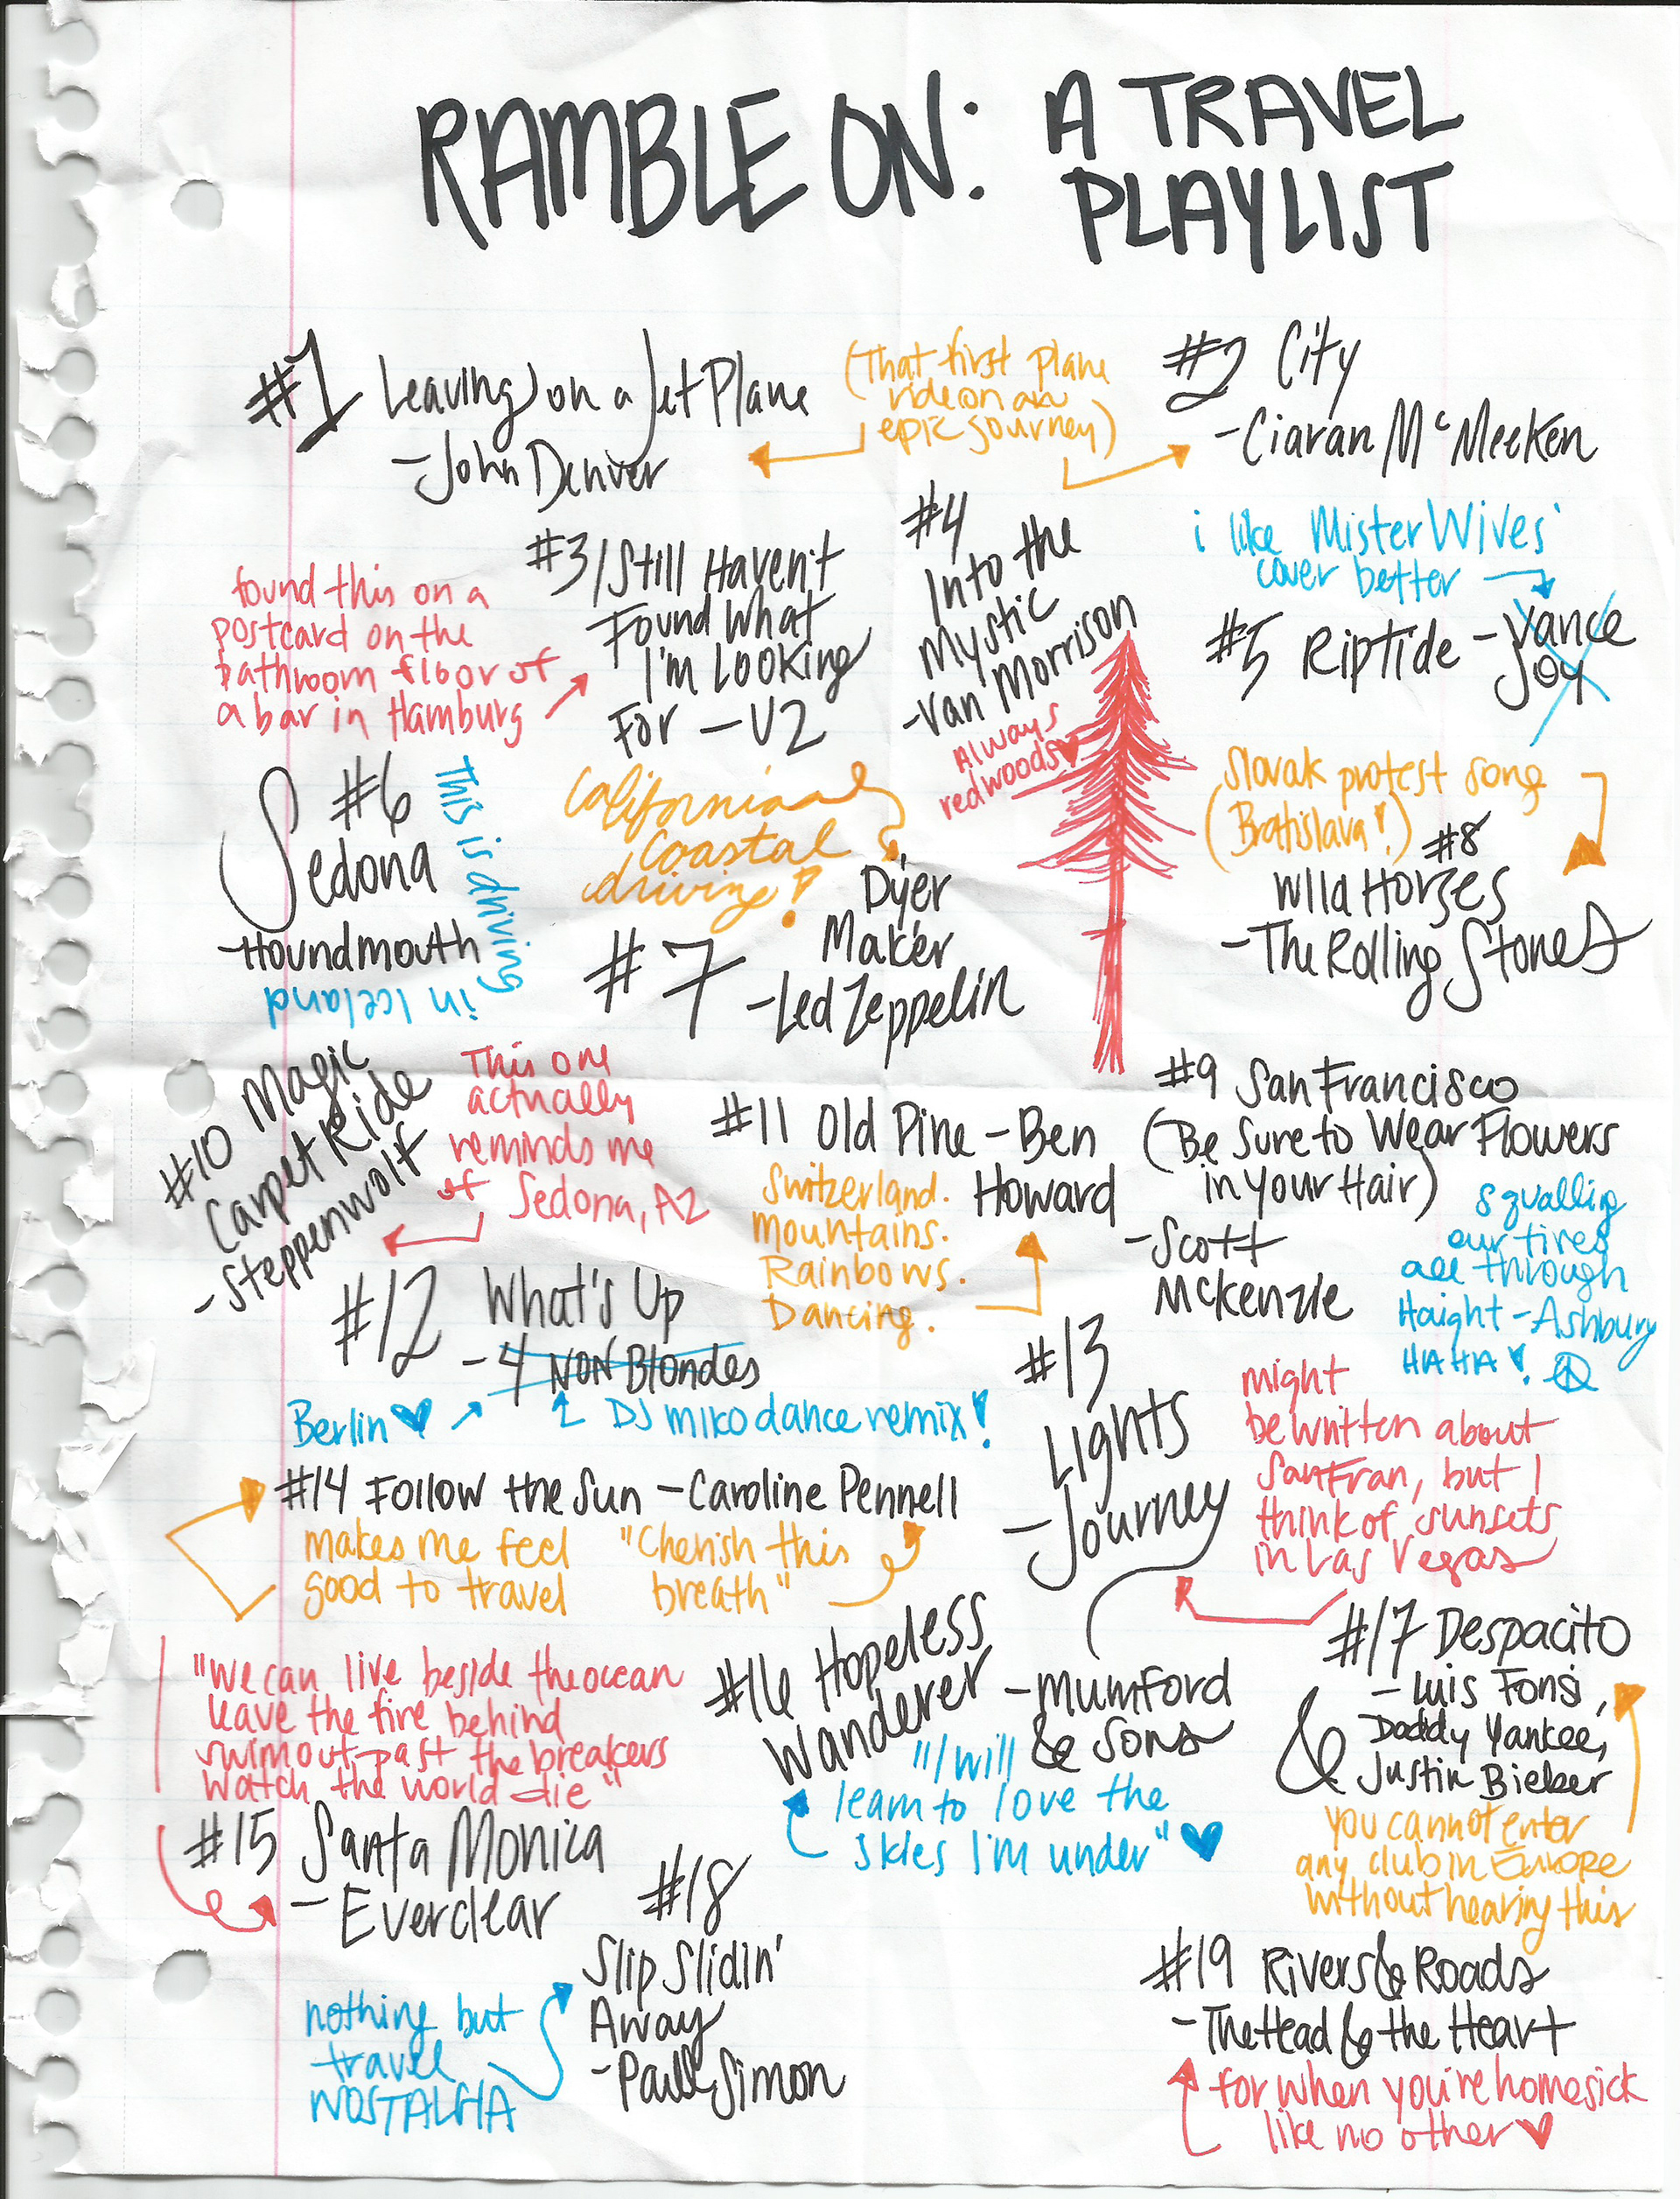 RAMBLE ON: A TRAVEL
PLAYLIST
#1 Leaving on a Jet Plane
-John Denver
(That first plane
ride on an
epic journey)
#2 City
-Ciaran McMeeken
#3 I Still Haven't
Found What
I'm Looking
For - U2
found this on a
postcard on the
bathroom floor of
a bar in Hamburg
#4
Into the
Mystic
-Van Morrison
Always
redwoods
i like MisterWives'
cover better
#5 Riptide - Vance
Joy
#6
Sedona
-Houndmouth
This is driving
in Iceland
California
coastal
driving!
#7
Dyer
Maker
-Led Zeppelin
Slovak protest song
(Bratislava!)
#8
Wild Horses
-The Rolling Stones
#9 San Francisco
(Be Sure to Wear Flowers
in your Hair)
-Scott
McKenzie
squalling
our tires
all through
Haight-Ashbury
HAHA!
#10 Magic
Carpet Ride
-Steppenwolf
This one
actually
reminds me
of Sedona, AZ
#11 Old Pine - Ben
Howard
Switzerland.
Mountains.
Rainbows.
Dancing.
#12 What's Up
-4 NON Blondes
Berlin
DJ miko dance remix!
#13
Lights
-Journey
might
be written about
SanFran, but I
think of sunsets
in Las Vegas
#14 Follow the Sun - Caroline Pennell
makes me feel
good to travel
"Cherish this
breath"
"We can live beside the ocean
leave the fire behind
swim out past the breakers
watch the world die"
#15 Santa Monica
- Everclear
#16 Hopeless
Wanderer
-Mumford
& Sons
"I will
learn to love the
skies I'm under"
#17 Despacito
- Luis Fonsi,
Daddy Yankee,
& Justin Bieber
you cannot enter
any club in Europe
without hearing this
#18
Slip Slidin'
Away
-Paul Simon
nothing but
travel
NOSTALGIA
#19 Rivers & Roads
-The Head & the Heart
for when you're homesick
like no other